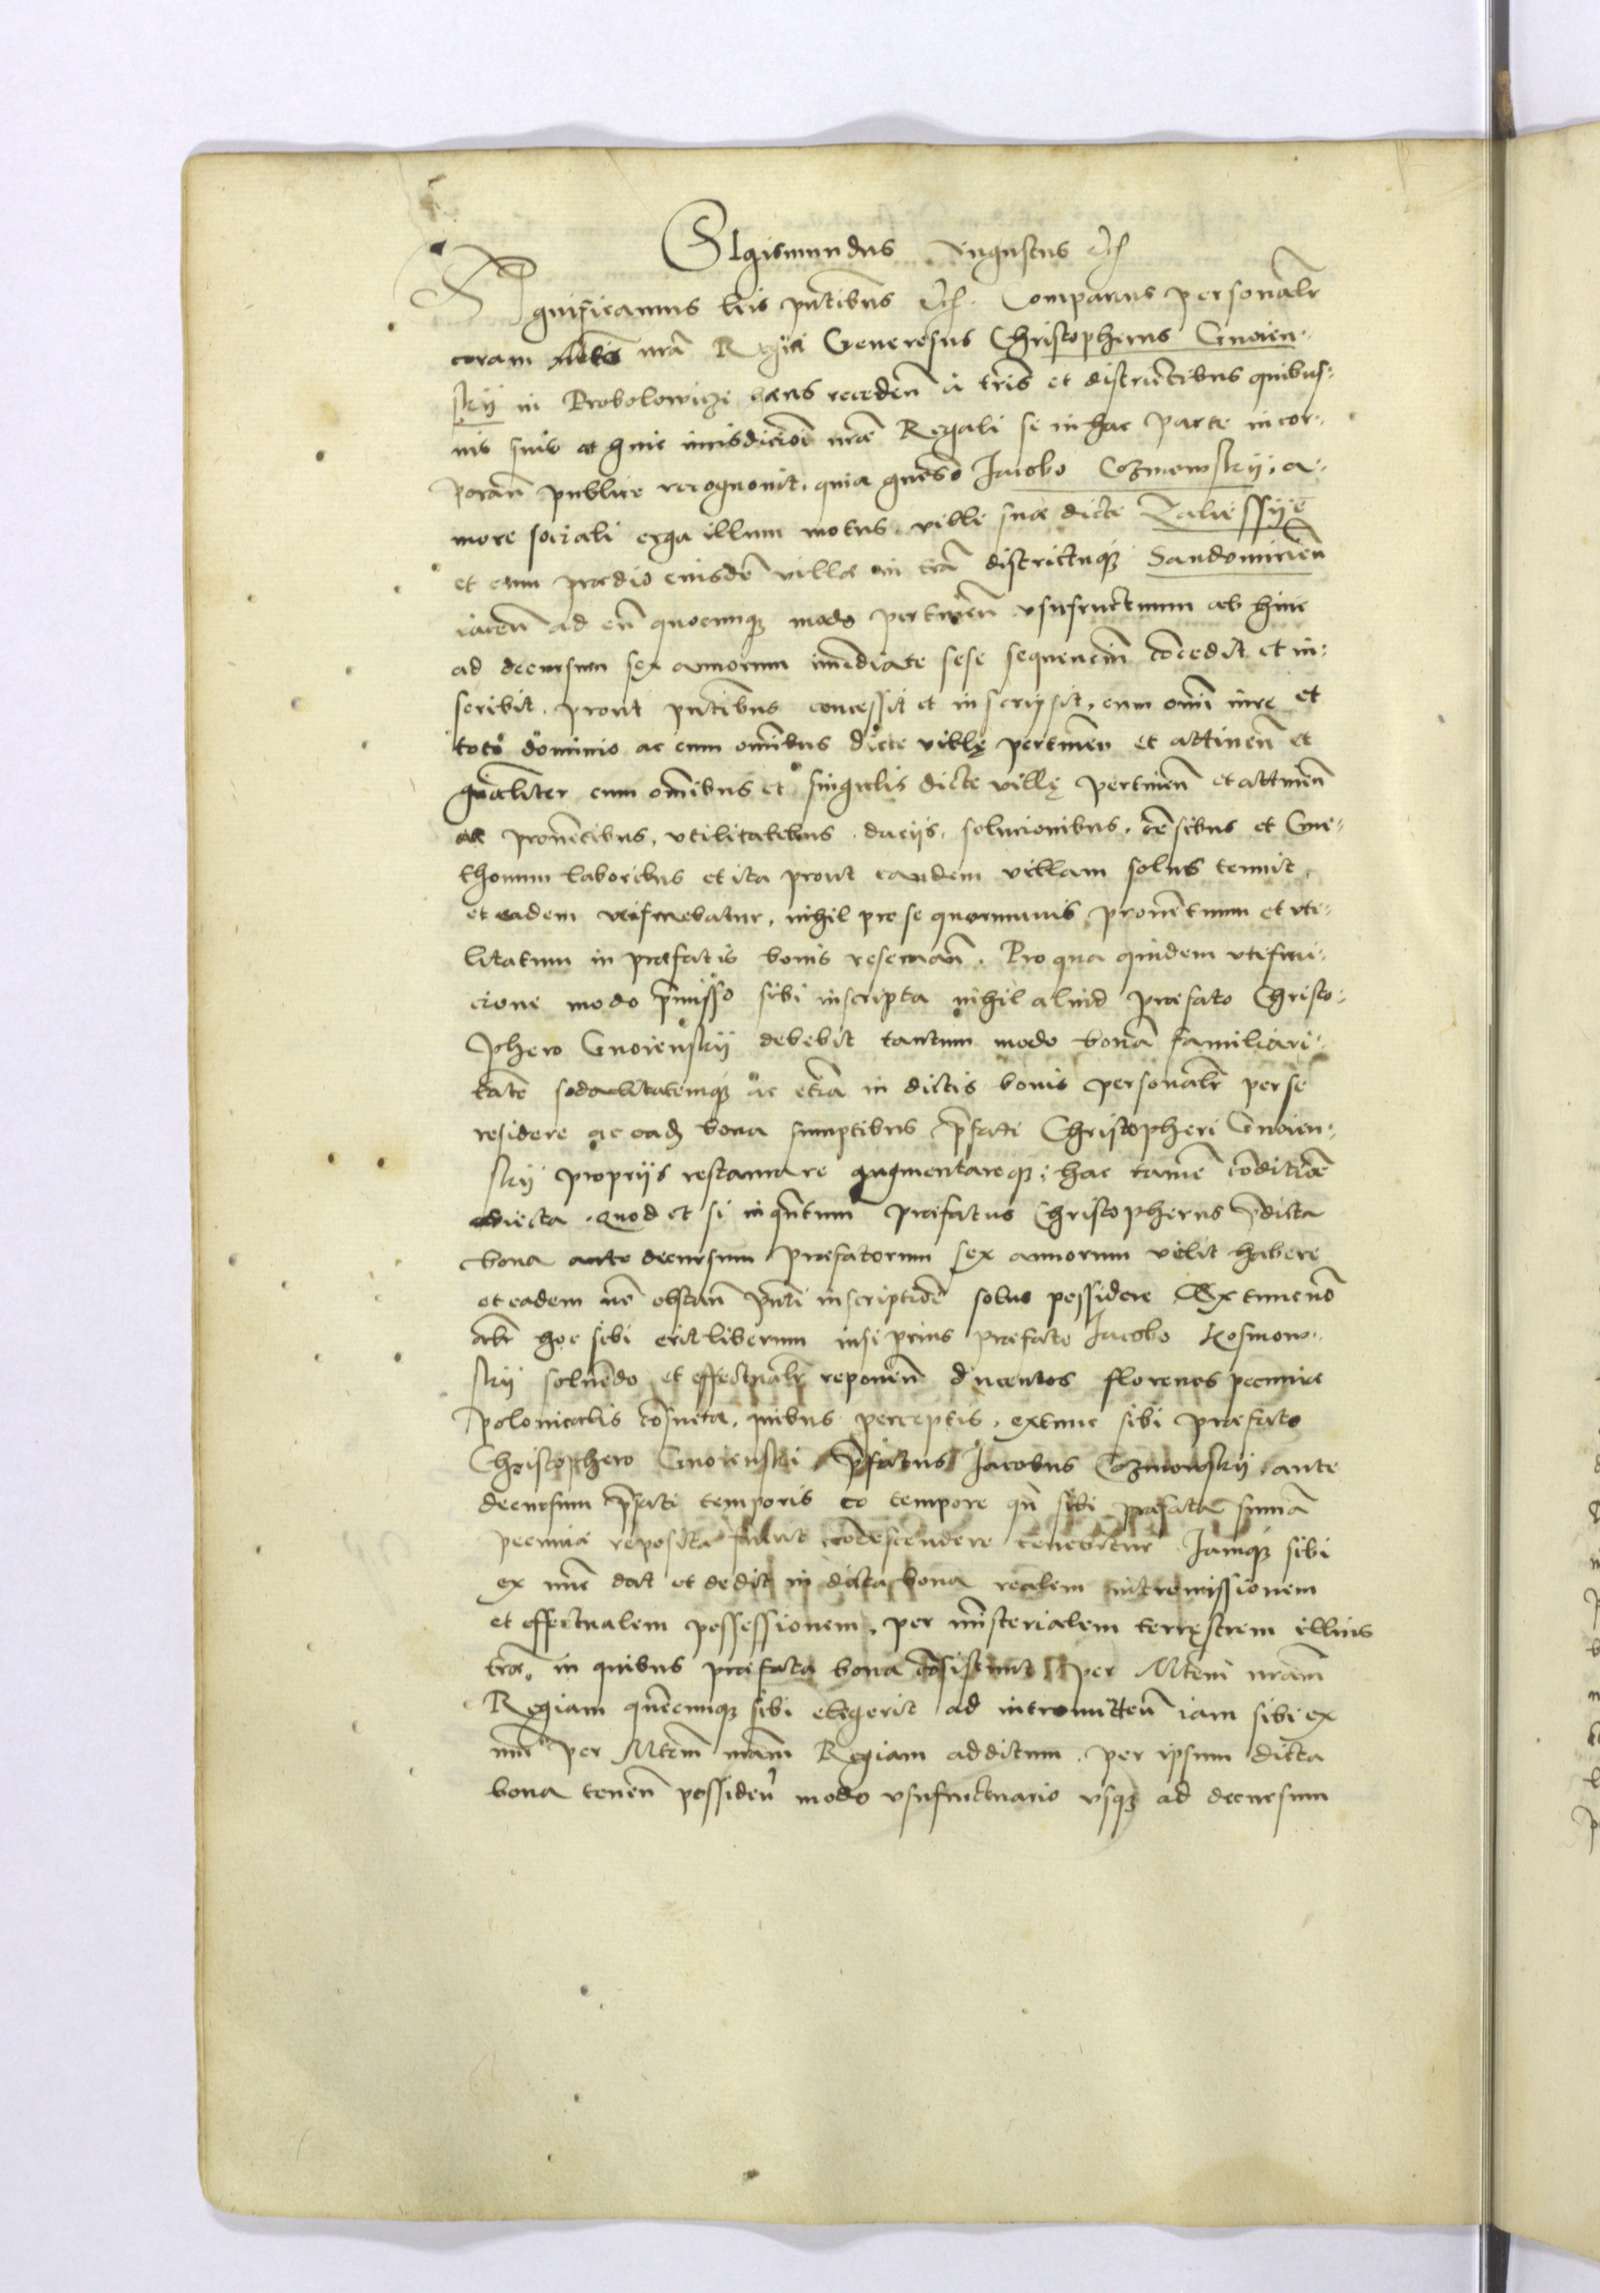 SIgismundus Augustus etc
SIgnificamus lris pntibus etc. Comparens personalr
coram Mte nrã Regia Generosus Christopherus Gnoien-
skij in Probolowicze hæres recedeñ à tris et districtibus quibus-
uis suis et huic iurisdicioi nræ Regali se in hac parte incor-
porañ publice recognouit, quia gneso Jacobo Cozmowskij, a-
more sociali erga illum motus, villæ suæ dictæ Zaliessÿe
et cum prædio eiusdẽ villæ in trã districtuq; Sandomirieñ
iaceñ ad eũ quocunq; modo pertineñ vsufructuum ab hinc
ad decursum sex annorum imediate sese sequenciũ cõcedit et in-
scribit, prout pntibus concessit et inscripsit, cum omi iure et
toto dominio ac cum omibus dictæ villę pertineñ et attineñ et
gnäliter cum omibus et singulis dictæ villę pertineñ et attineñ
ac prouẽtibus, vtilitatibus, dacijs, solucionibus, cẽsibus et Cme-
thonum laboribus et ita prout eandem villam solus tenuit,
et eadem vtifruebatur, nihil pro se quorumuis prouẽtuum et vti-
litatum in præfatis bonis reseruañ. Pro qua quidem vtifrui-
cione modo pmisso sibi inscripta nihil aliud præfato Christo-
phero Gnoienskij debebit tantum modo bonã familiari-
tatẽ sodalitatemq; ac etiã in dictis bonis personalr per se
residere ac eadẽ bona sumptibus pfati Christopheri Gnoien-
skij proprijs restaurare augmentareq; hac tamẽ cõditiõe
adiecta. Quod et si inquãtum præfatus Christopherus pdicta
bona ante decursum præfatorum sex annorum velit habere
et eadem nõ obstañ pnti inscriptiõe solus possidere Ex tunc nõ
alr hoc sibi erit liberum nisi prius præfato Jacobo Kosmow-
skij soluẽdo et effectualr reponeñ ducentos florenos pecuniæ
polonicalis cõsueta, quibus perceptis, extunc sibi præfato
Christophero Gnoienski pfatus Jacobus Cozmowskij ante
decursum pfati temporis eo tempore qñ sibi præfata sumã
pecuniæ reposita fuerit cõdescendere tenebitur. Jamq; sibi
ex nũc dat et dedit in dicta bona realem intromissionem
et effectualem possessionem, per ministerialem terręstrem illius
træ, in quibus præfata bona cõsistunt per Mtem nram
Regiam quẽcunq; sibi elegerit ad intromitteñ iam sibi ex
nũc per Mtem nram Regiam additum, per ipsum dicta
bona teneñ possideñ modo vsufructuario vsq; ad decursum